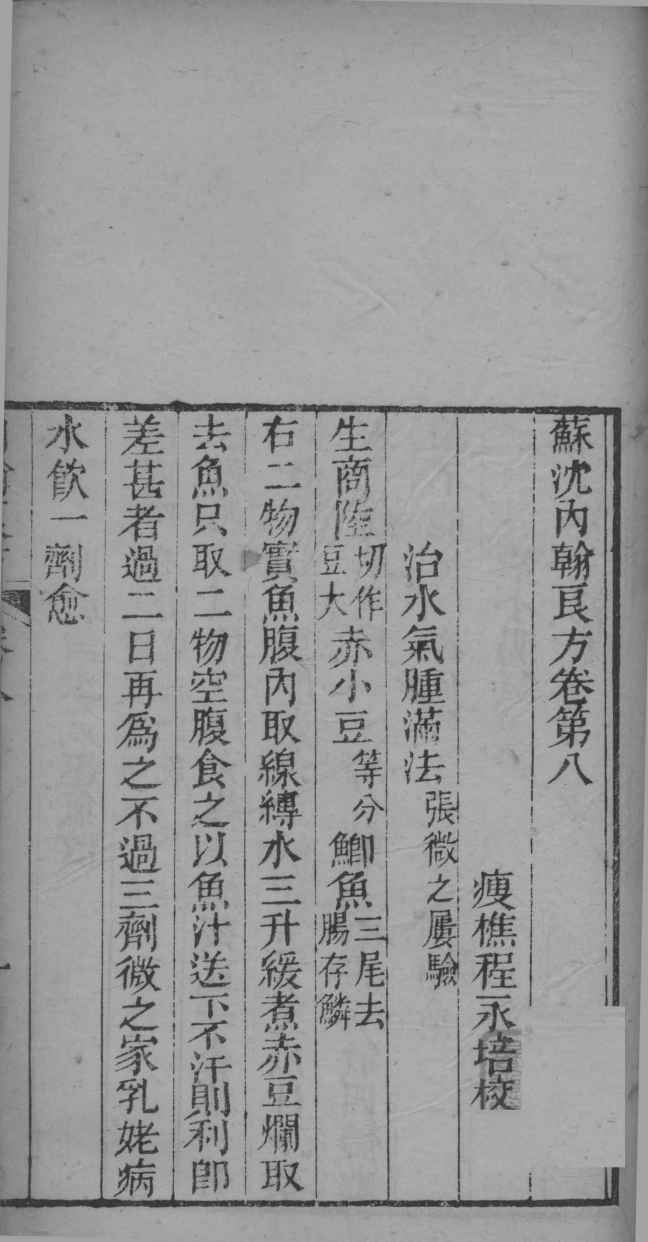 蘇沈內翰良方卷第八
瘦樵程永培校
治水氣腫滿法張微之屢驗
生商陸切作豆大赤小豆等分鯽魚三尾去腸存鱗
右二物實魚腹內取線縛水三升緩煮赤豆爛取
去魚只取二物空腹食之以魚汁送下不汗則利卽
差甚者過二日再爲之不過三劑微之家乳姥病
水飲一劑愈